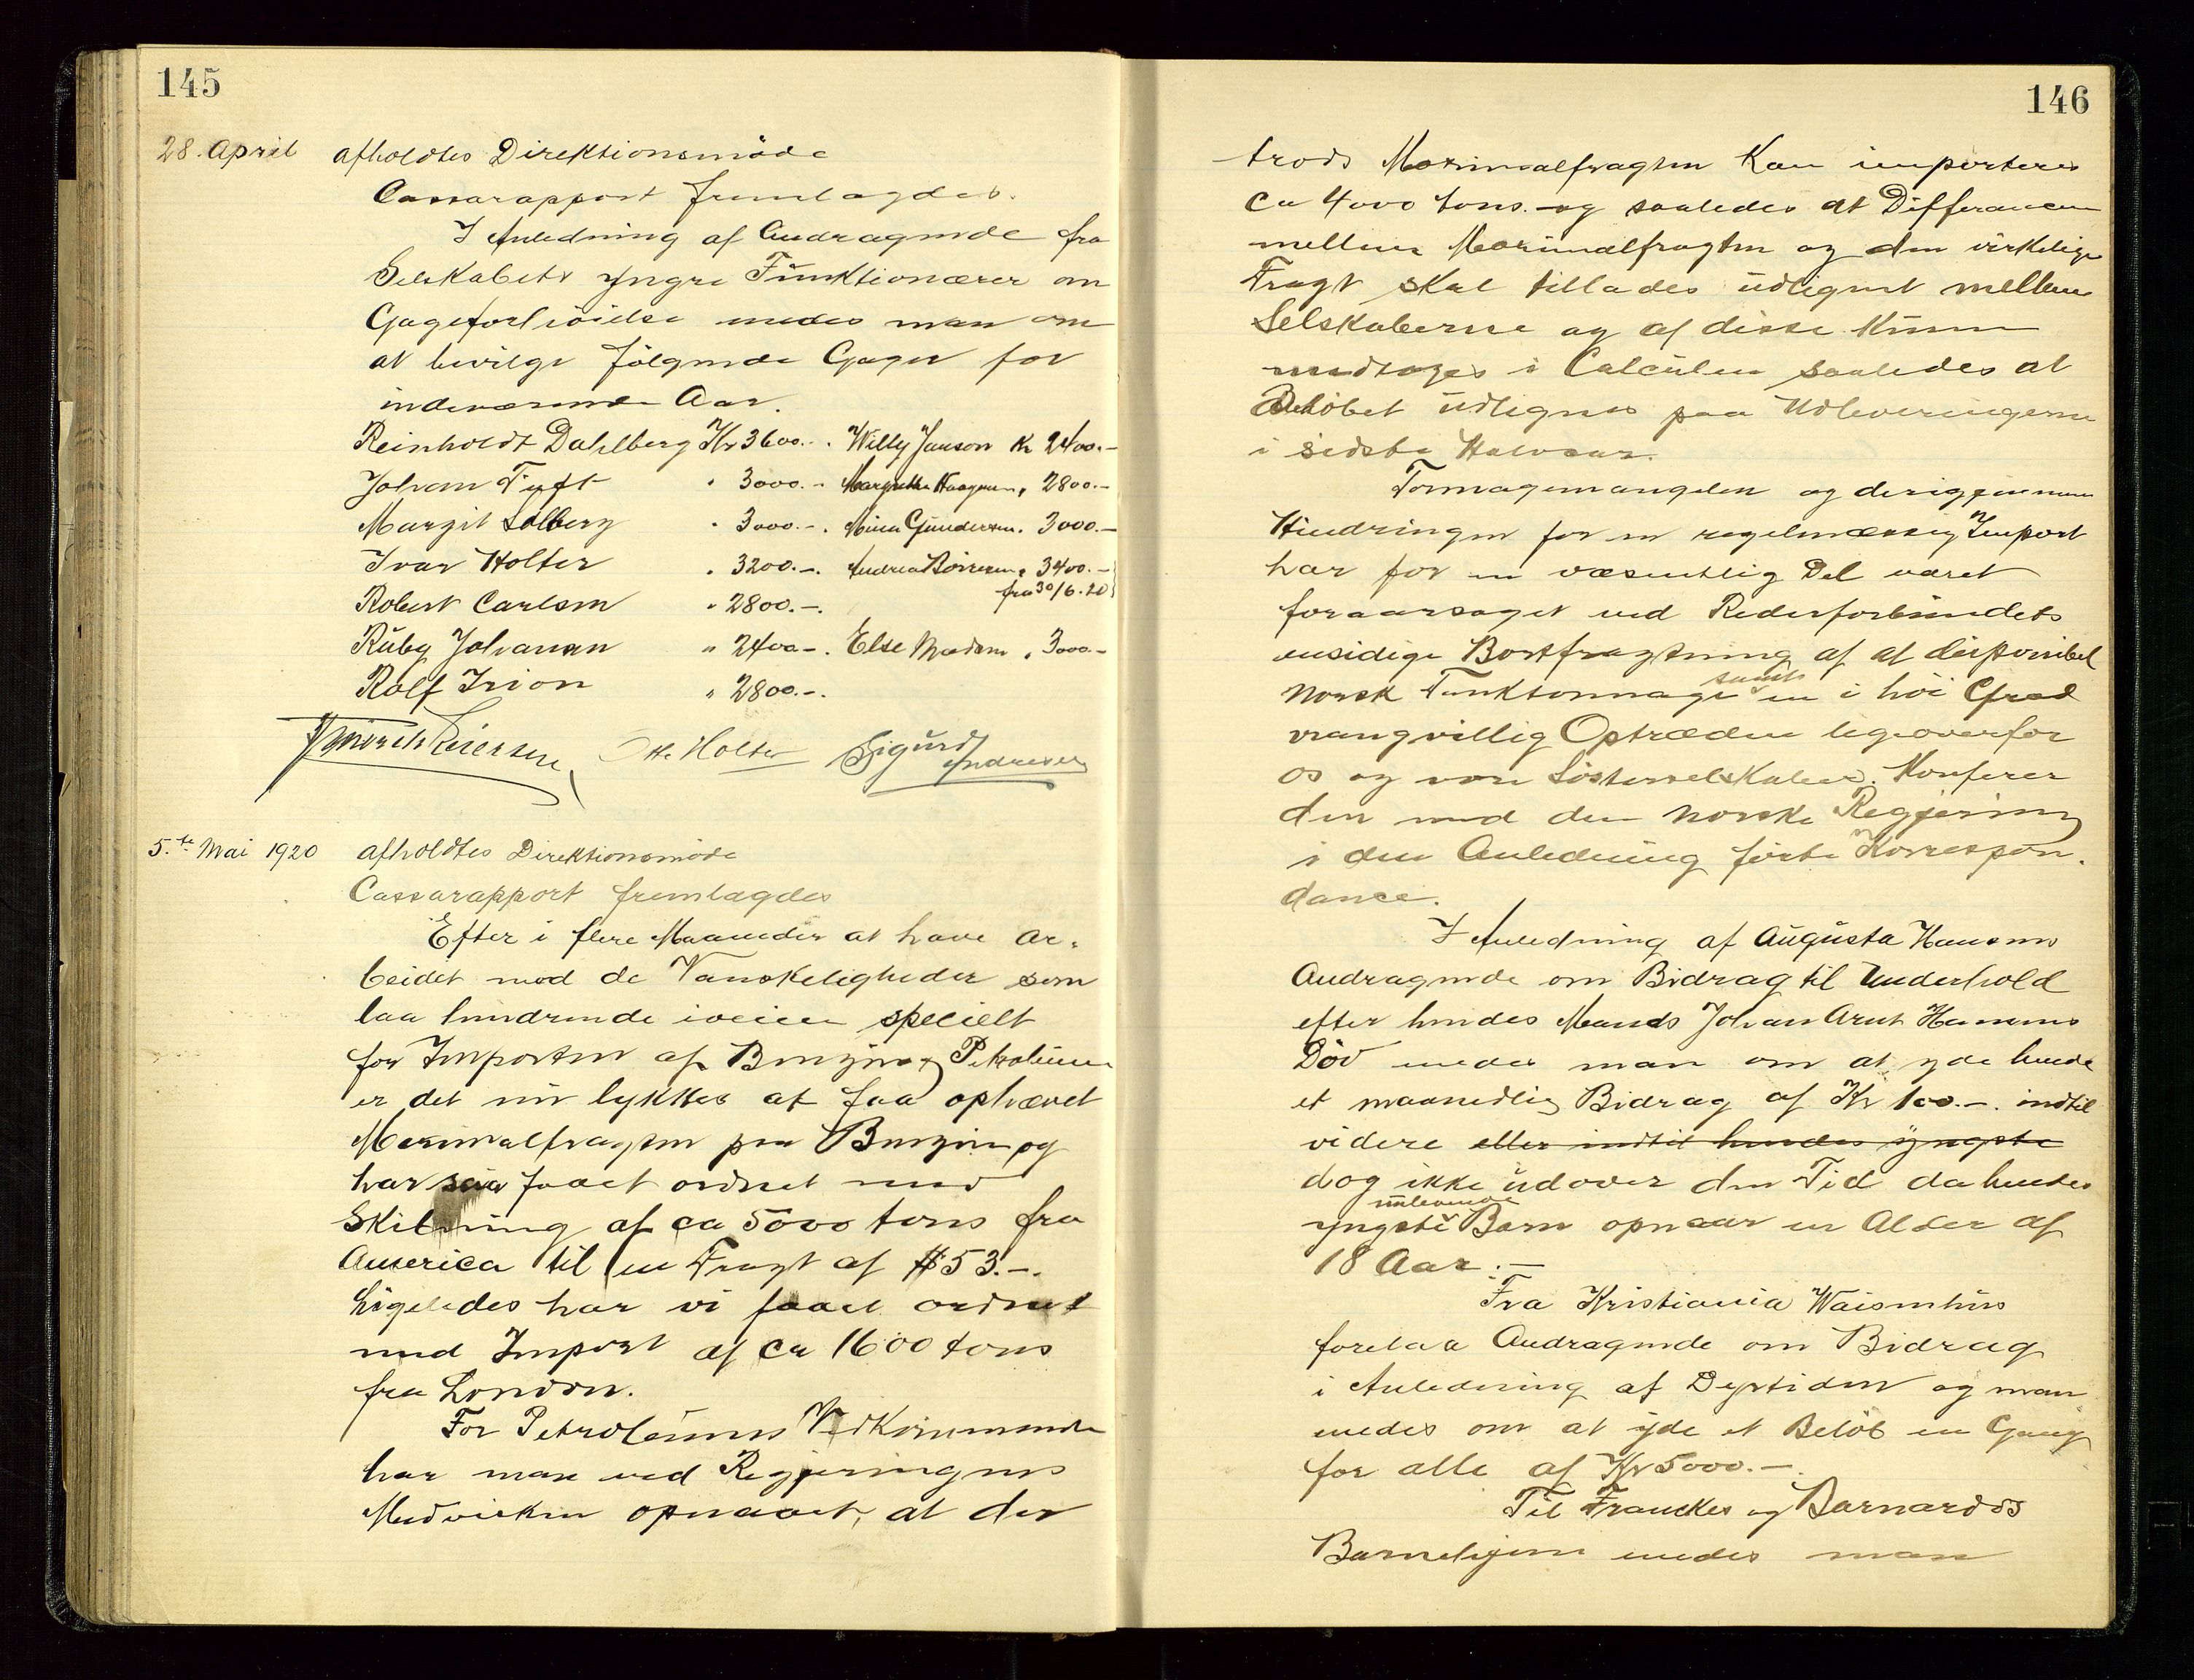 145
28. April afholdtes Direktionsmöde
Cassarapport fremlagdes.
I Anledning af Andragende fra
Selskabets yngre Funktionærer om
Gageforhöielse enedes man om
at bevilge fölgende Gager for
indeværende Aar.
Reinholdt Dahlberg Kr 3600.-. Willy Janson Kr 2400.-
Johan Tyft " 3000.- Margrethe Haagensen " 2800.-
Margit Solberg " 3000.-. Mina Gundersen. 3000.-
Ivar Holter " 3200.-. Andrea Börresen " 3400.-
fra 30/6.20
Robert Carlsen " 2800.-.
Ruby Johansen " 2400.-. Else Madsen " 3000.-
Rolf Irion " 2800.-.
Otto Holter Sigurd
Andresen
5.te Mai 1920 afholdtes Direktionsmöde
Cassarapport fremlagdes
Efter i flere Maaneder at have ar-
beidet mod de Vanskeligheder som
laa hindrende iveien specielt
for Importen af Benzin og Petroleum
er det nu lykkes at faa ophævet
Maximalfragten paa Benzin og
har saa faaet ordnet med
Skibning af ca 5000 tons fra
America til en Fragt af $53.-.
Ligeledes har vi faaet ordnet
med Import af ca 1600 tons
fra London.
For Petroleums Vedkommende
har man ved Regjeringens
Medvirken opnaaet, at der
146
trods Maximalfragten kan importeres
ca 4000 tons. og saaledes at Differancen
mellem Maximalfragten og den virkelige
Fragt skal tillades udlignet mellem
Selskaberne og af disse kunne
medtages i Calculen saaledes at
Belöbet udlignes paa Udleveringerne
i sidste Halvaar.
Tonnagemangelen og derigjennem
Hindringen for en regelmæssig Import
har for en væsentlig Del været
foraarsaget ved Rederforbundets
ensidige Bortfragtning af al disponibel
norsk Tanktonnage samt en i höi Grad
vrangvillig Optræden ligeoverfor
os og vore Söstersselskaber. Konferer
den med den norske Regjering
i den Anledning förte Korrespon-
dance.
I Anledning af Augusta Hansens
Andragende om Bidrag til Underhold
efter hendes Mands Johan Arnt Hansens
Död enedes man om at yde hende
et maanedlig Bidrag af Kr 100.-. indtil
videre eller indtil hendes yngste
dog ikke udover den Tid da hendes
nulevende
yngste Barn opnaar en Alder af
18 Aar.-
Fra Kristiania Waisenhus
forelaa Andragende om Bidrag
i Anledning af Dyrtiden og man
enedes om at yde et Belöb en Gang
for alle af Kr 5000.-.
Til Franckes og Barnardos
Barnehjem enedes man